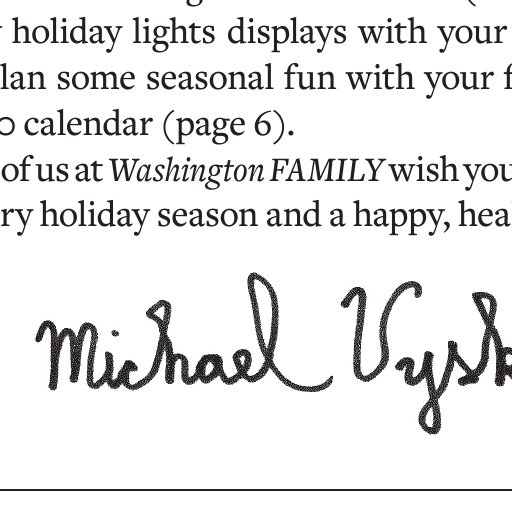 holiday lights displays with your
lan some seasonal fun with your f
0 calendar (page 6).
of us at Washington FAMILY wish you
ry holiday season and a happy, heal
Michael Vysk